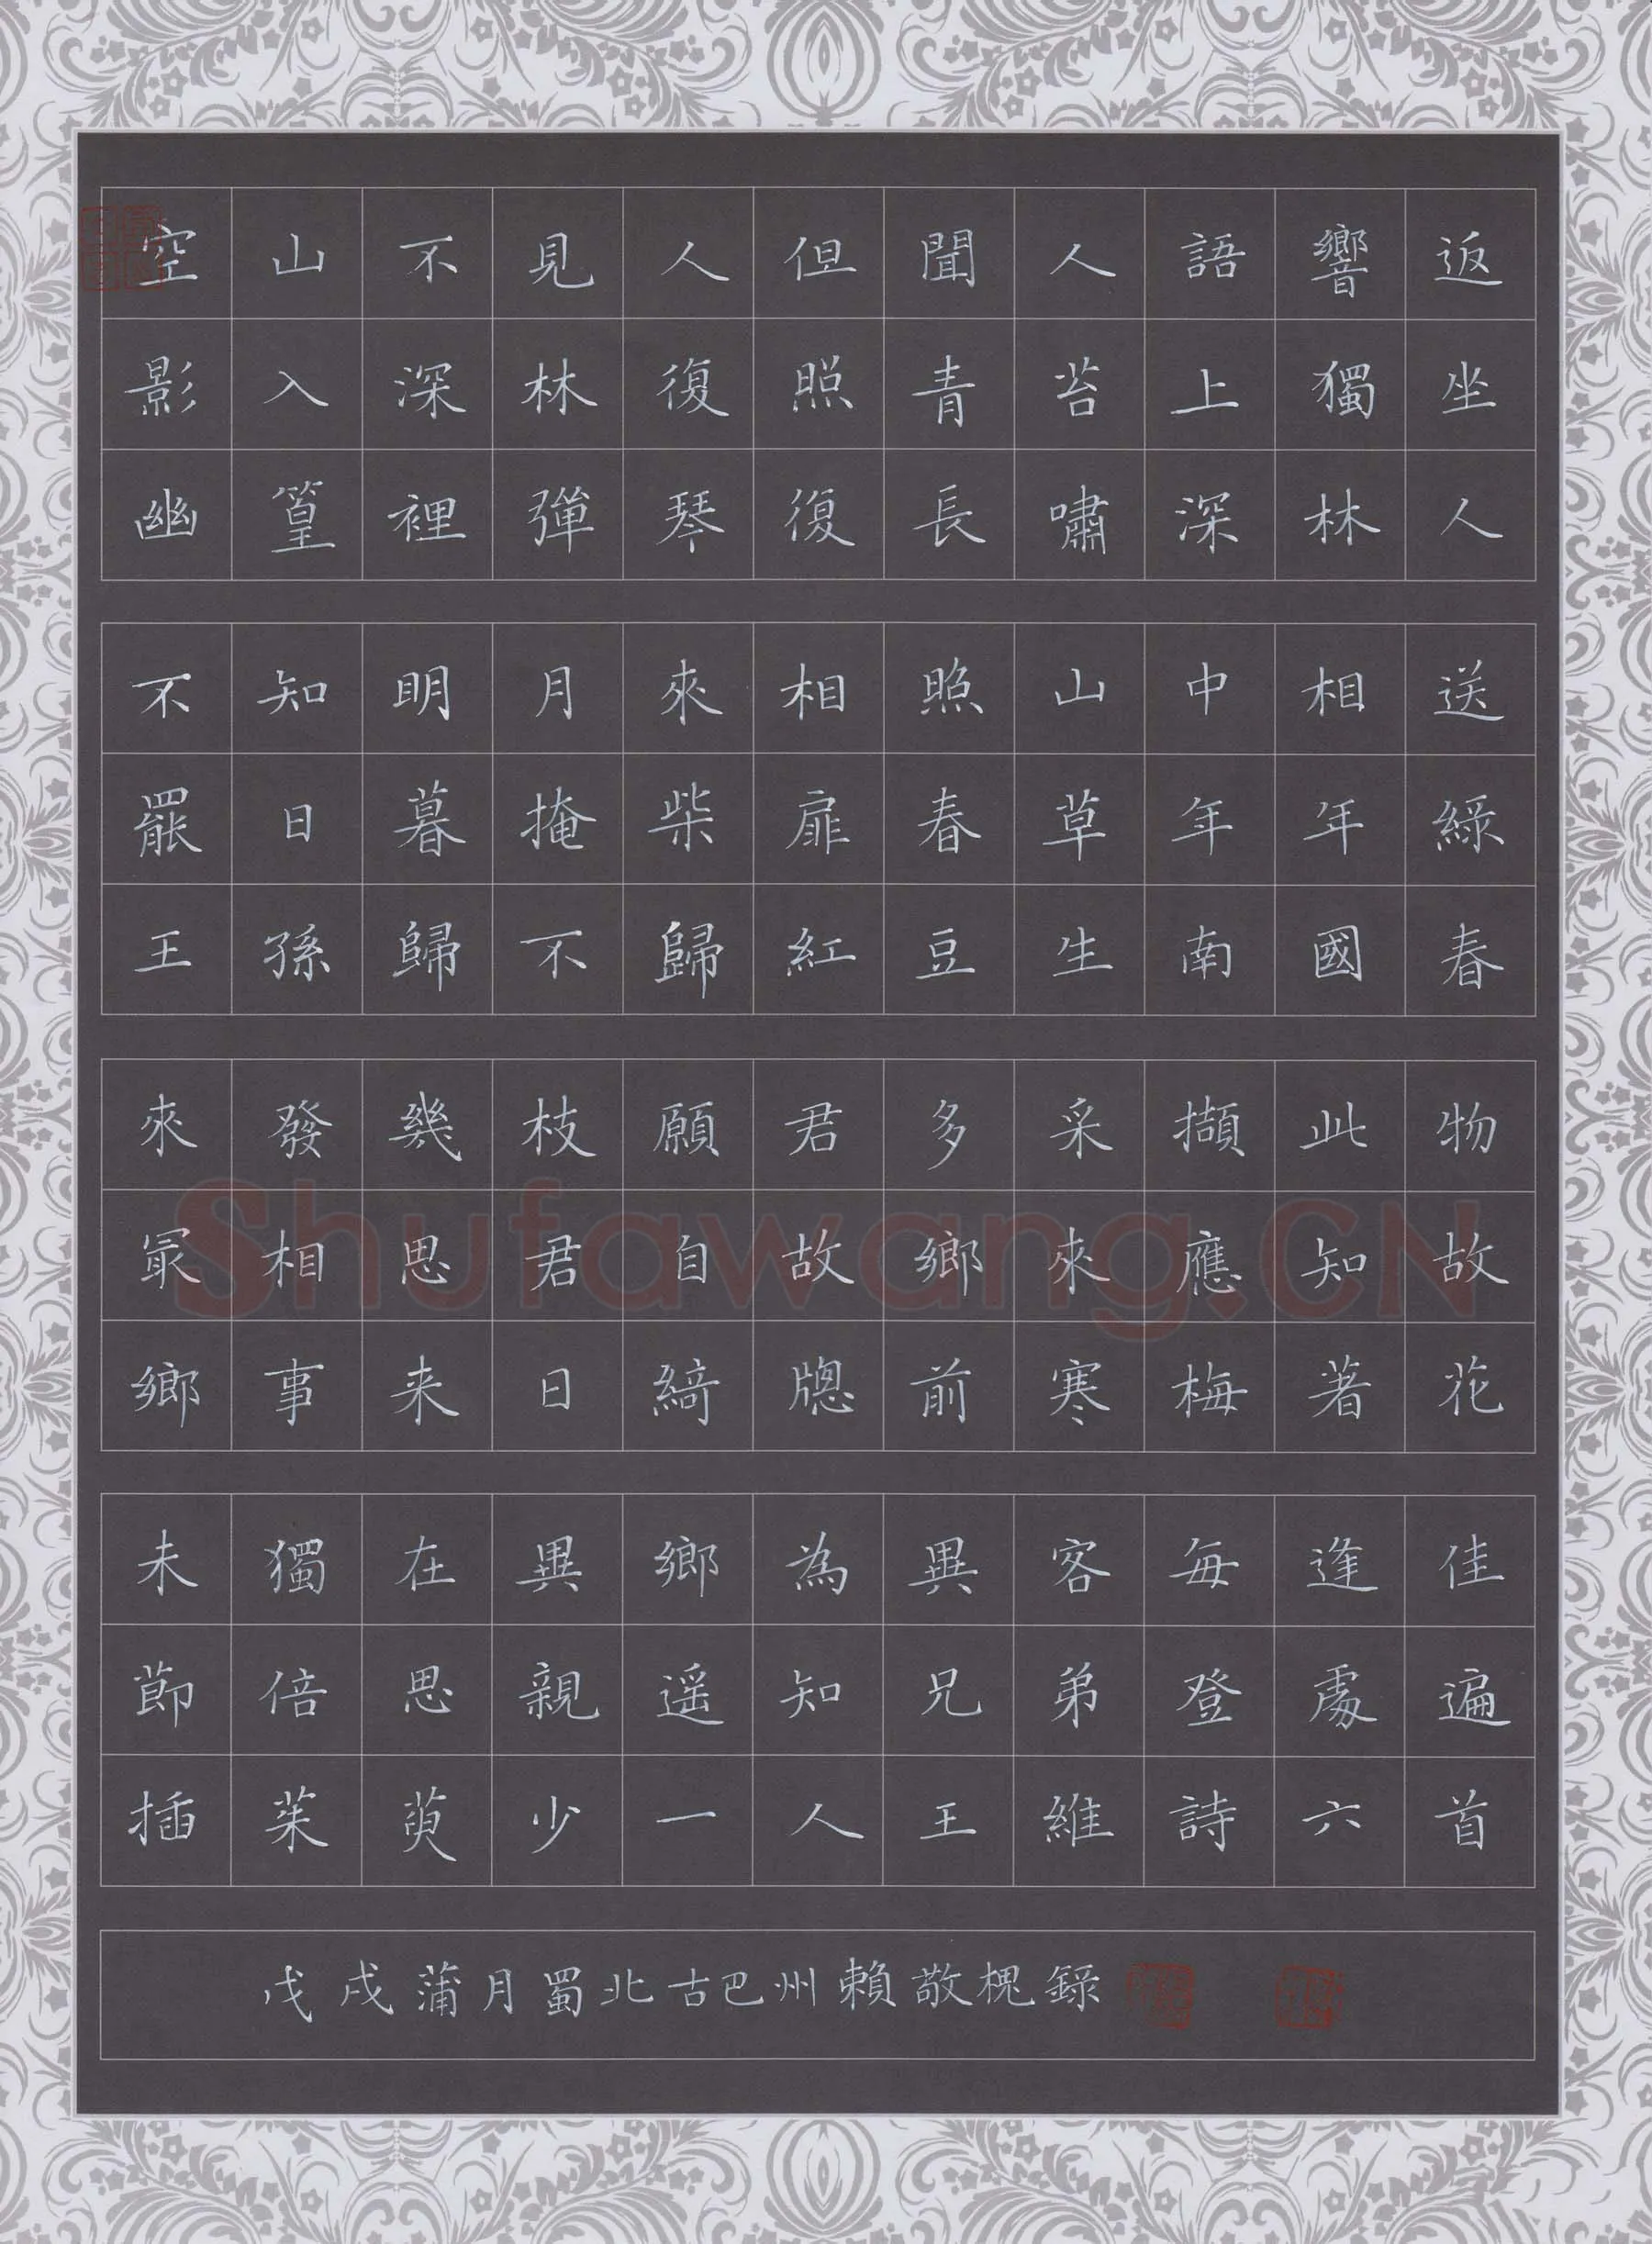 空山不見人但聞人語響返
影入深林復照青苔上獨坐
幽篁裡彈琴復長嘯深林人
不知明月來相照山中相送
罷日暮掩柴扉春草年年綠
王孫歸不歸紅豆生南國春
來發幾枝願君多采擷此物
最相思君自故鄉來應知故
鄉事来日綺牕前寒梅著花
未獨在異鄉為異客每逢佳
節倍思親遥知兄弟登處遍
插茱萸少一人王維詩六首
戊戌蒲月蜀北古巴州賴敬槐錄
Shufawang.CN